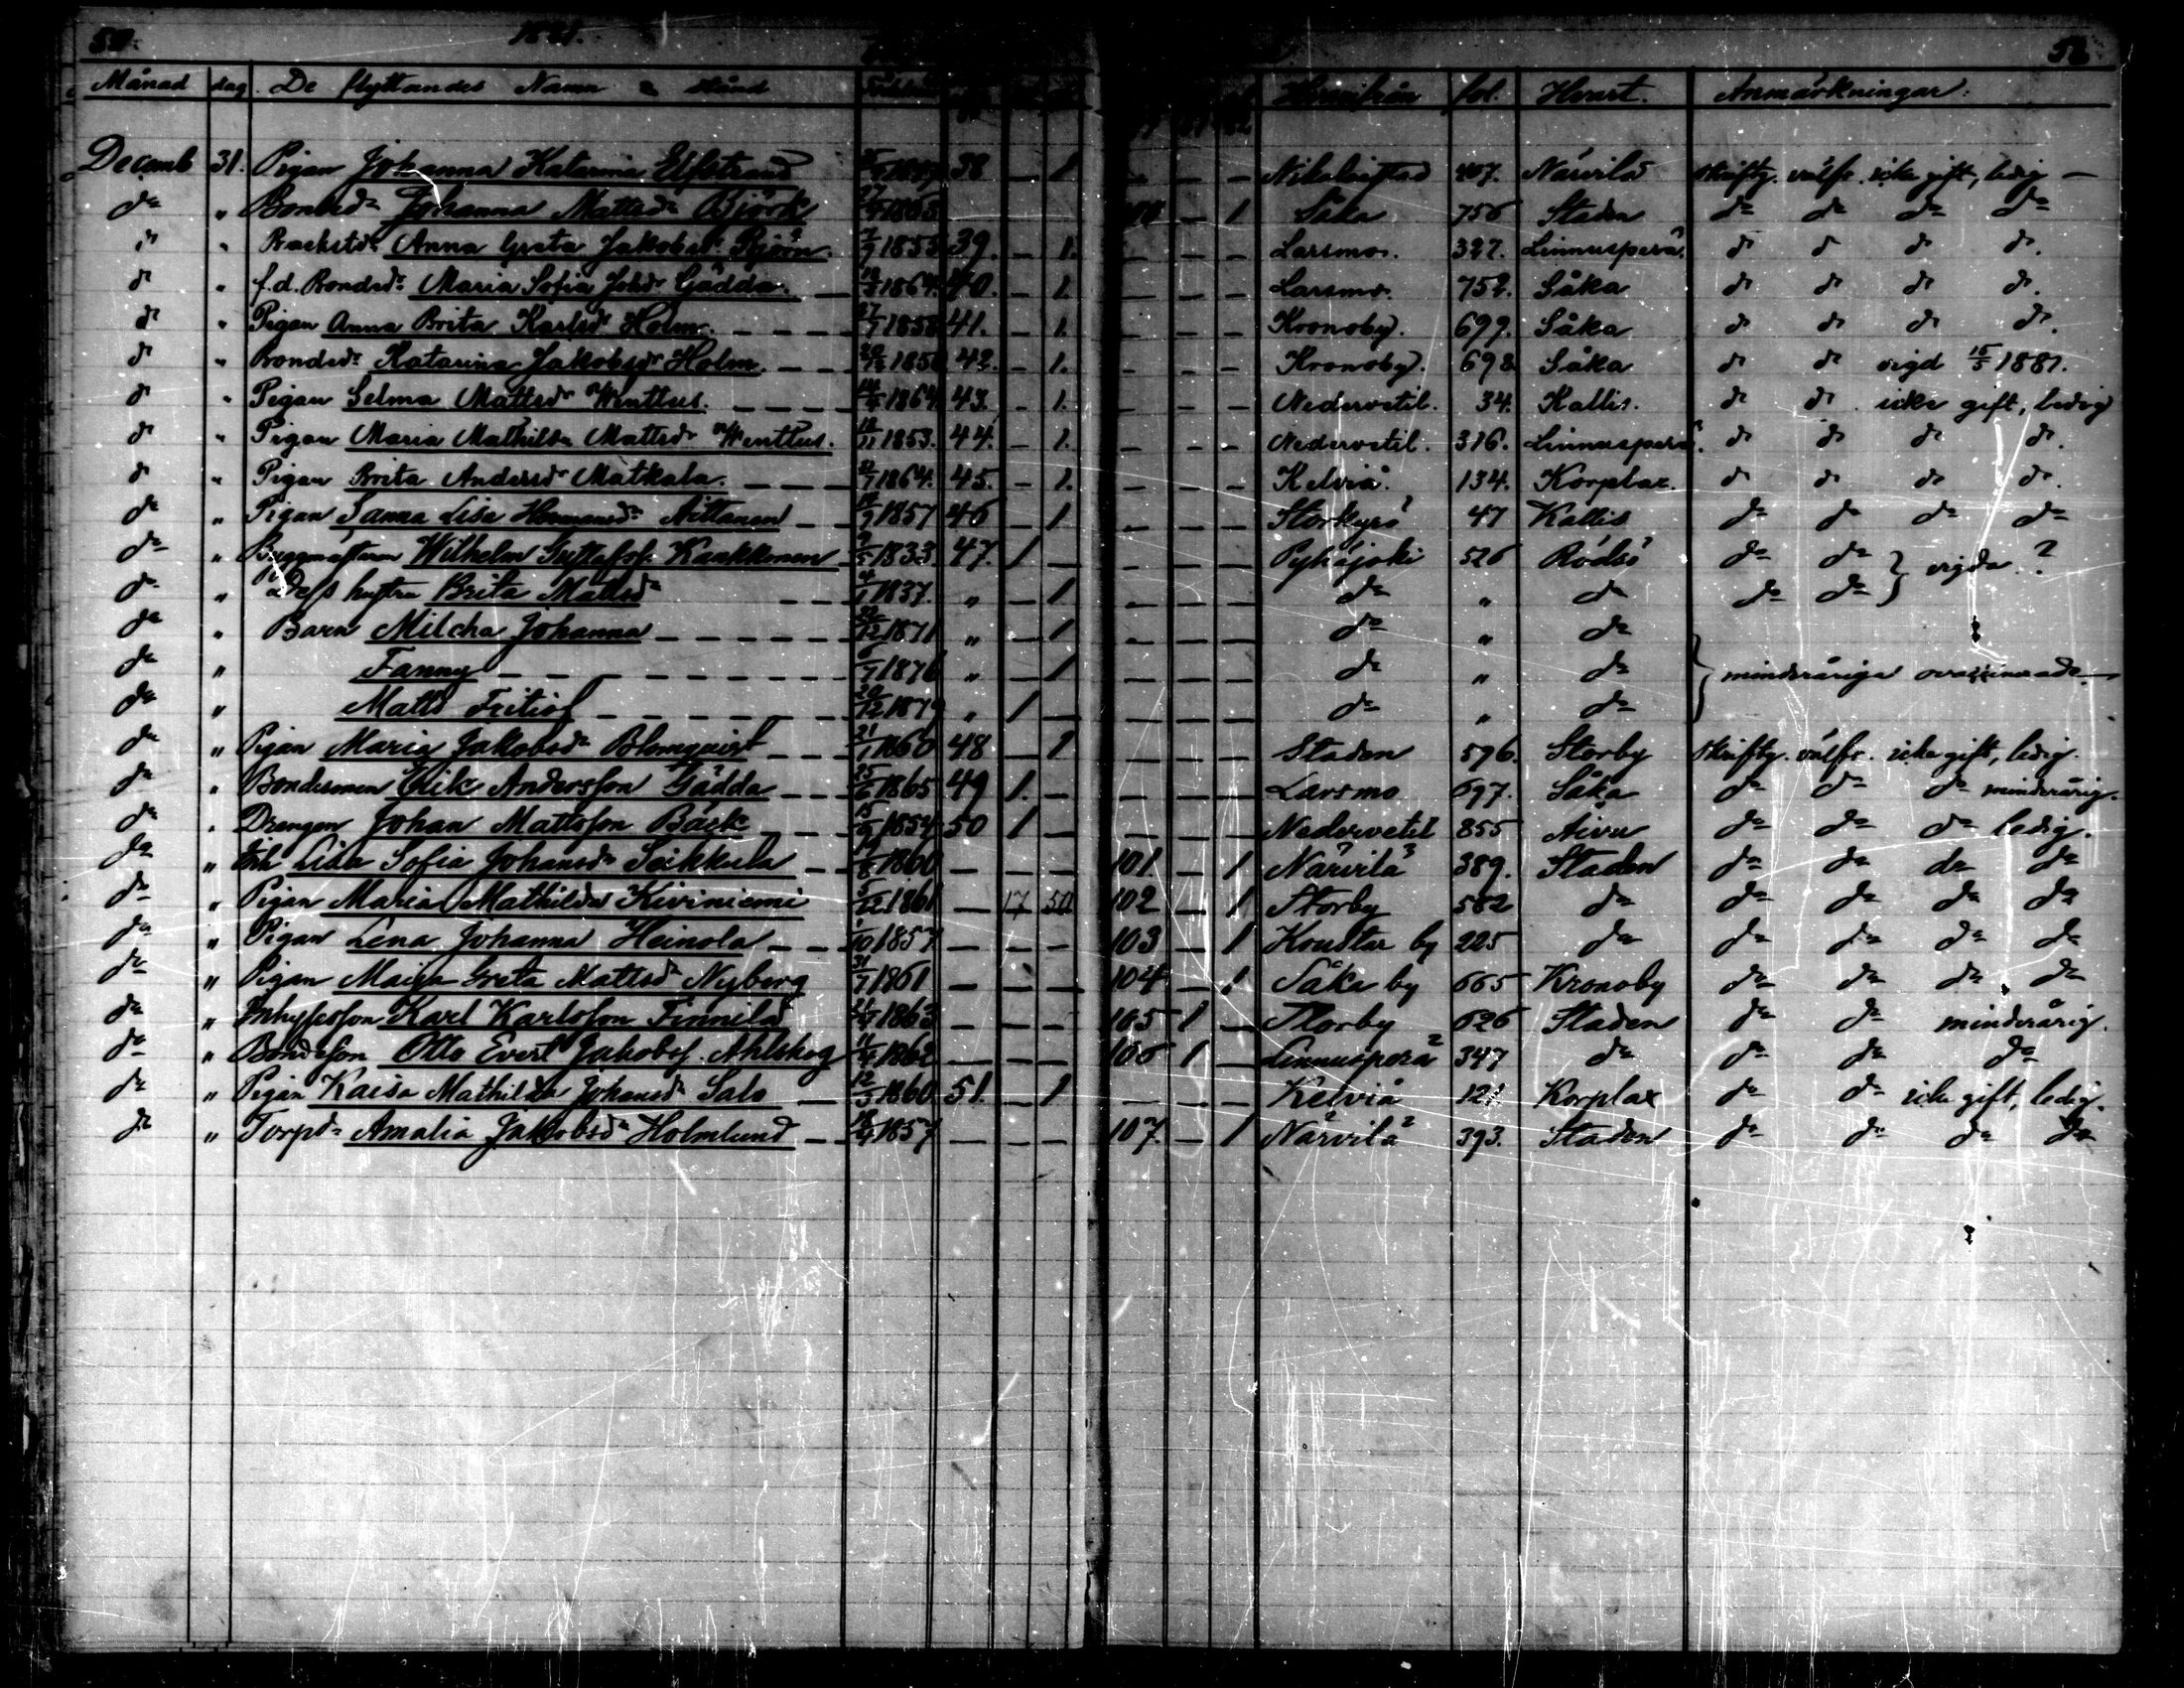 1881.
Månad dag. De flyttandes Namn & stånd Hvarifrån fol. Hvart. Anmärkningar:
Decemb 31. Pigan Johanna Katarina Elfstrand 38 — 1 — — — 407. Närvilä skriftg. välfr. icke gift, ledig —
dº " Bonded. Johanna Mattsdr Björk 100 — 1 Såka 756 Staden dº dº dº dº
dº " Backstdr Anna Greta Jakobsdr Björn. 7/7 1855 39. — 1. — — — Larsmo. 327. Linnusperä. dº dº dº dº.
dº " f.d. Bondedr Maria Sofia Johdr Gädda. — 1864. 40. — 1. — — — Larsmo. 752. Såka dº dº dº dº.
dº " Pigan Anna Brita Karlsdr Holm. — — — 27/7 1858 41. — 1. — — — Kronoby. 699. Såka dº dº dº dº.
dº " Bondedr Katarina Jakobsdr Holm. — — 42. — 1. — — — Kronoby. 698 Såka dº dº vigd 15/5 1881.
dº " Pigan Selma Mattsdr Wenttus. — — — — 1864 43. — 1. — — — Nedervetil. 34. Kallis. dº dº icke gift, ledig
dº " Pigan Maria Mathilda Mattsdr Wenttus. 18/11 1853. 44. — 1. — — — Nedervetil. 316. Linnusperä. dº dº dº dº.
dº " Pigan Brita Andersdr Matkala. — — — 1864. 45. — 1. — — — Kelviå. 134. Korplax. dº dº dº dº.
dº " Pigan Sanna Lisa Hermansdr Aittanen — 1857 46 — 1 — — — Storkyrö 47 Kallis dº dº dº dº
dº " Byggmästaren Wilhelm Gustafsf. Kaakkonen 1833 47. 1 — — — — Pyhäjoki 526 Rödsö dº dº } vigda?
dº " Dess hustru Brita Mattsdr — — 4/1 1837. " — 1 — — — dº " dº dº dº }
dº " Barn Milcha Johanna — — — — — 1871 " — 1 — — — dº " dº
dº " Fanny — — — — — — 6/7 1876 " — 1 — — — dº " dº } minderåriga ovaccinerade
dº " Matts Fritiof — — — — — 20/12 1879 " 1 — — — — dº " dº
dº " Pigan Maria Jakobsdr Blomqvist — — 21/1 1860 48 — 1 — — — Staden 596. Storby skriftg. välfr. icke gift, ledig.
dº " Bondesonen Erik Andersson Gädda — — 1865 49 1. — — — — Larsmo 697. Såka dº dº dº minderårig.
dº " Drengen Johan Mattsson Bäck — — 1854 50 1 — — — — Nedervetil 855 Aivu dº dº dº ledig.
dº " Inh Lisa Sofia Johansdr Seikkula — 19/8 1860 — — — 101 — 1 Närvilä 389. Staden dº dº dº dº
dº " Pigan Maria Mathilda Kiviniemi 5/12 1861 — 17 50 102 — 1 Storby 582 dº dº dº dº dº
dº " Pigan Lena Johanna Heinola — — 1857 — — — 103 — 1 225 dº dº dº dº dº
dº " Pigan Maija Greta Mattsdr Nyberg 31/7 1861 — — — 104 — 1 Såka by 665 Kronoby dº dº dº dº
dº " Inhysesson Karl Karlsson Finnilä 1863 — — — 105 1 — Storby 626 Staden dº dº minderårig.
dº " Bondeson Otto Evert Jakobsf. Ahlskog 11/4 1862 — — — 106 1 — Linnusperä 347 dº dº dº dº
dº " Pigan Kaisa Mathilda Johansdr Salo — 12/3 1860 51. — 1 — — — Kelviå 121 Korplax dº dº icke gift, ledig.
dº " Torpdr Amalia Jakobsdr Holmlund — 18/4 1857 — — — 107 — 1 Närvilä 393. Staden dº dº dº dº